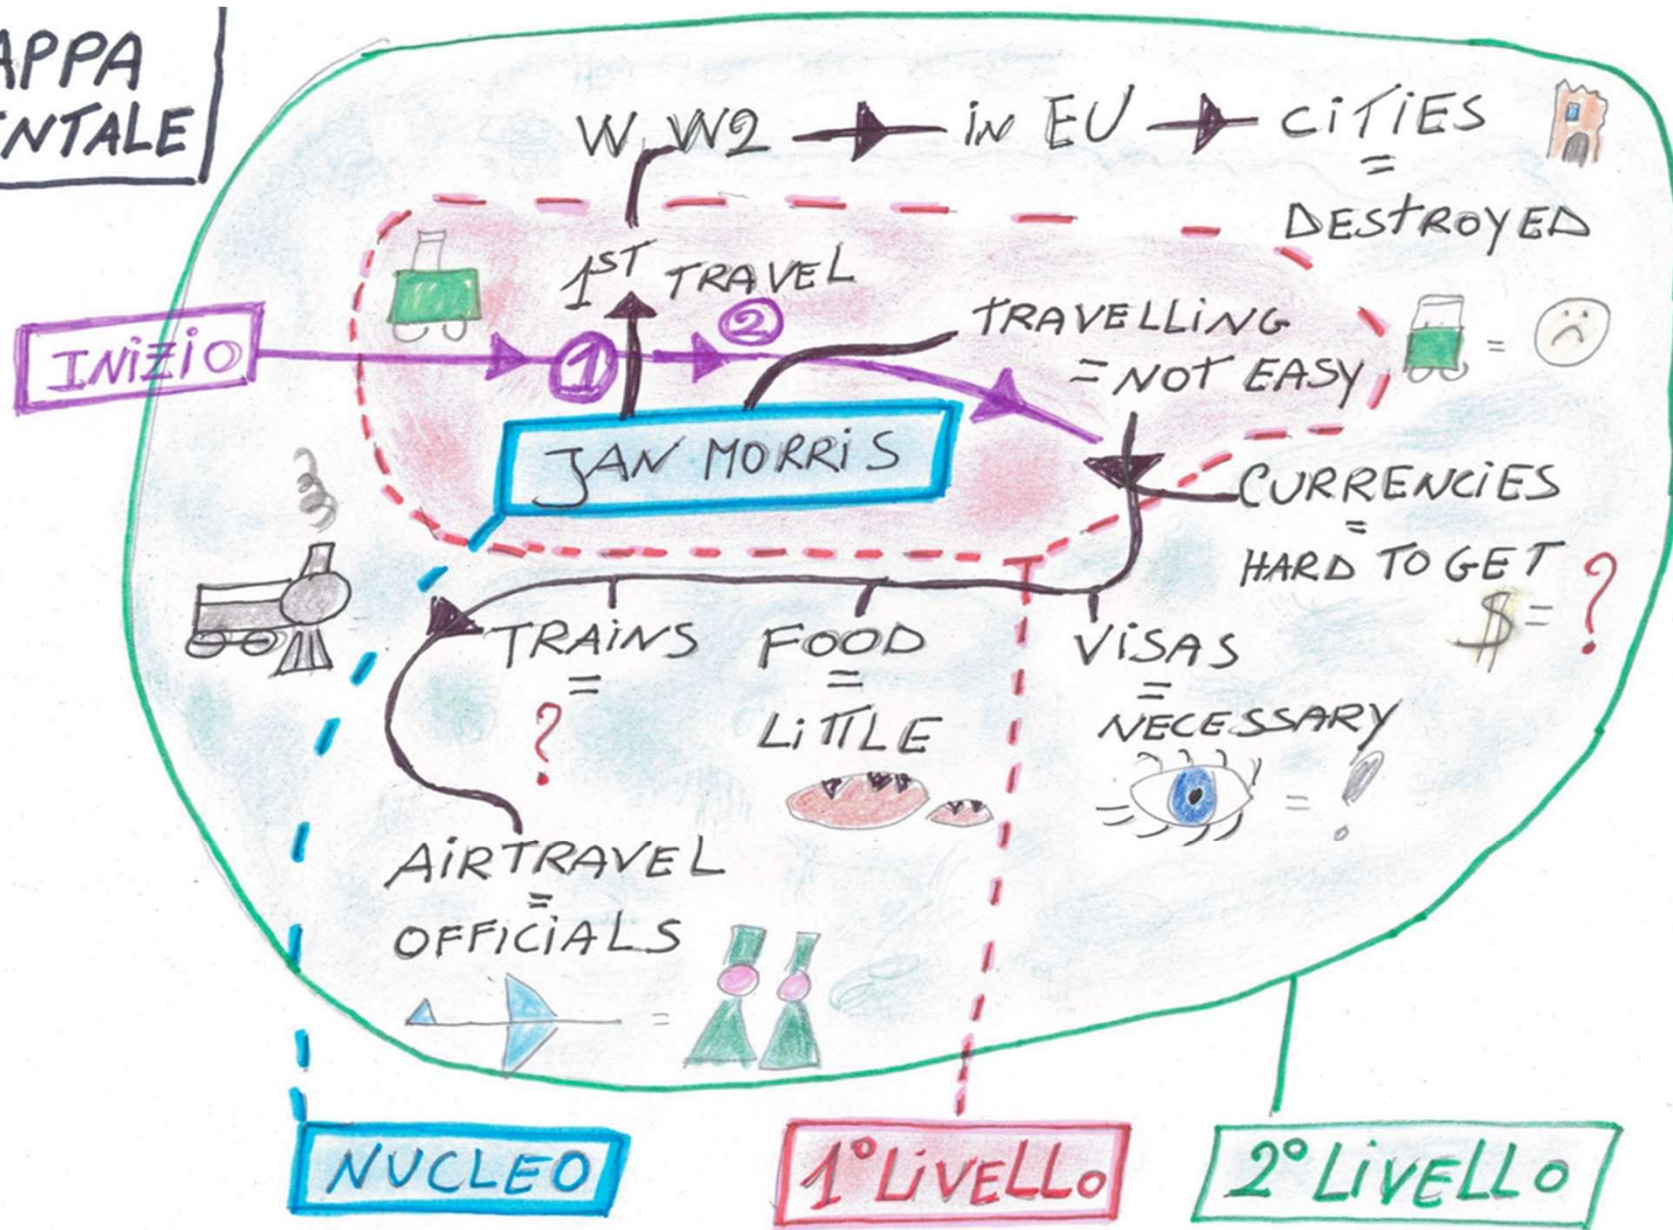 APPA
NTALE
W.W2 in EU CiTiES
=
DESTROYED
1ST TRAVEL
2
TRAVELLiNG
= NOT EASY
=
INiZiO
1
JAN MORRiS
CURRENCiES
=
HARD TO GET
$ = ?
TRAiNS
=
?
FOOD
=
LiTTLE
ViSAS
=
NECESSARY
= !
AiRTRAVEL
=
OFFiCiALS
=
NUCLEO
1° LiVELLO
2° LiVELLO